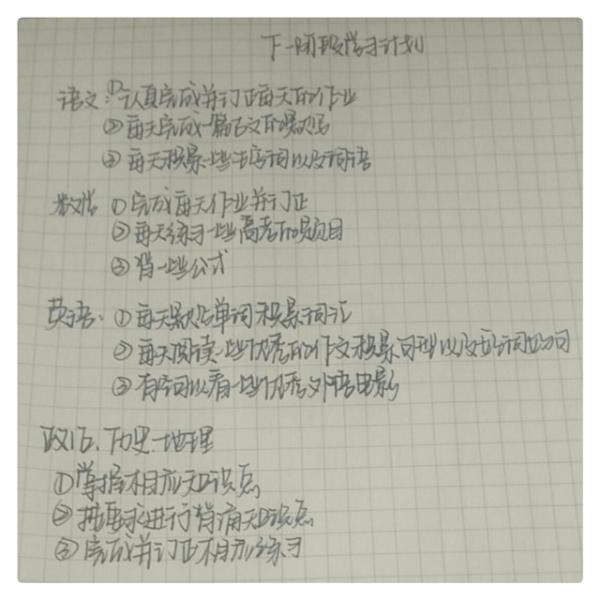 下一阶段学习计划
语文:①认真完成并订正每天的作业
②每天完成一篇古文的默写
③每天积累一些古诗词以及词语
数学 ①完成每天作业并订正
②每天练习一些高考的题目
③背一些公式
英语:①每天默写单词积累词汇
②每天阅读一些优秀的作文积累句型以及好词好句
③有空可以看一些优秀外语电影
政治、历史、地理
①掌握相应知识点
②按要求进行背诵知识点
③完成并订正相应练习